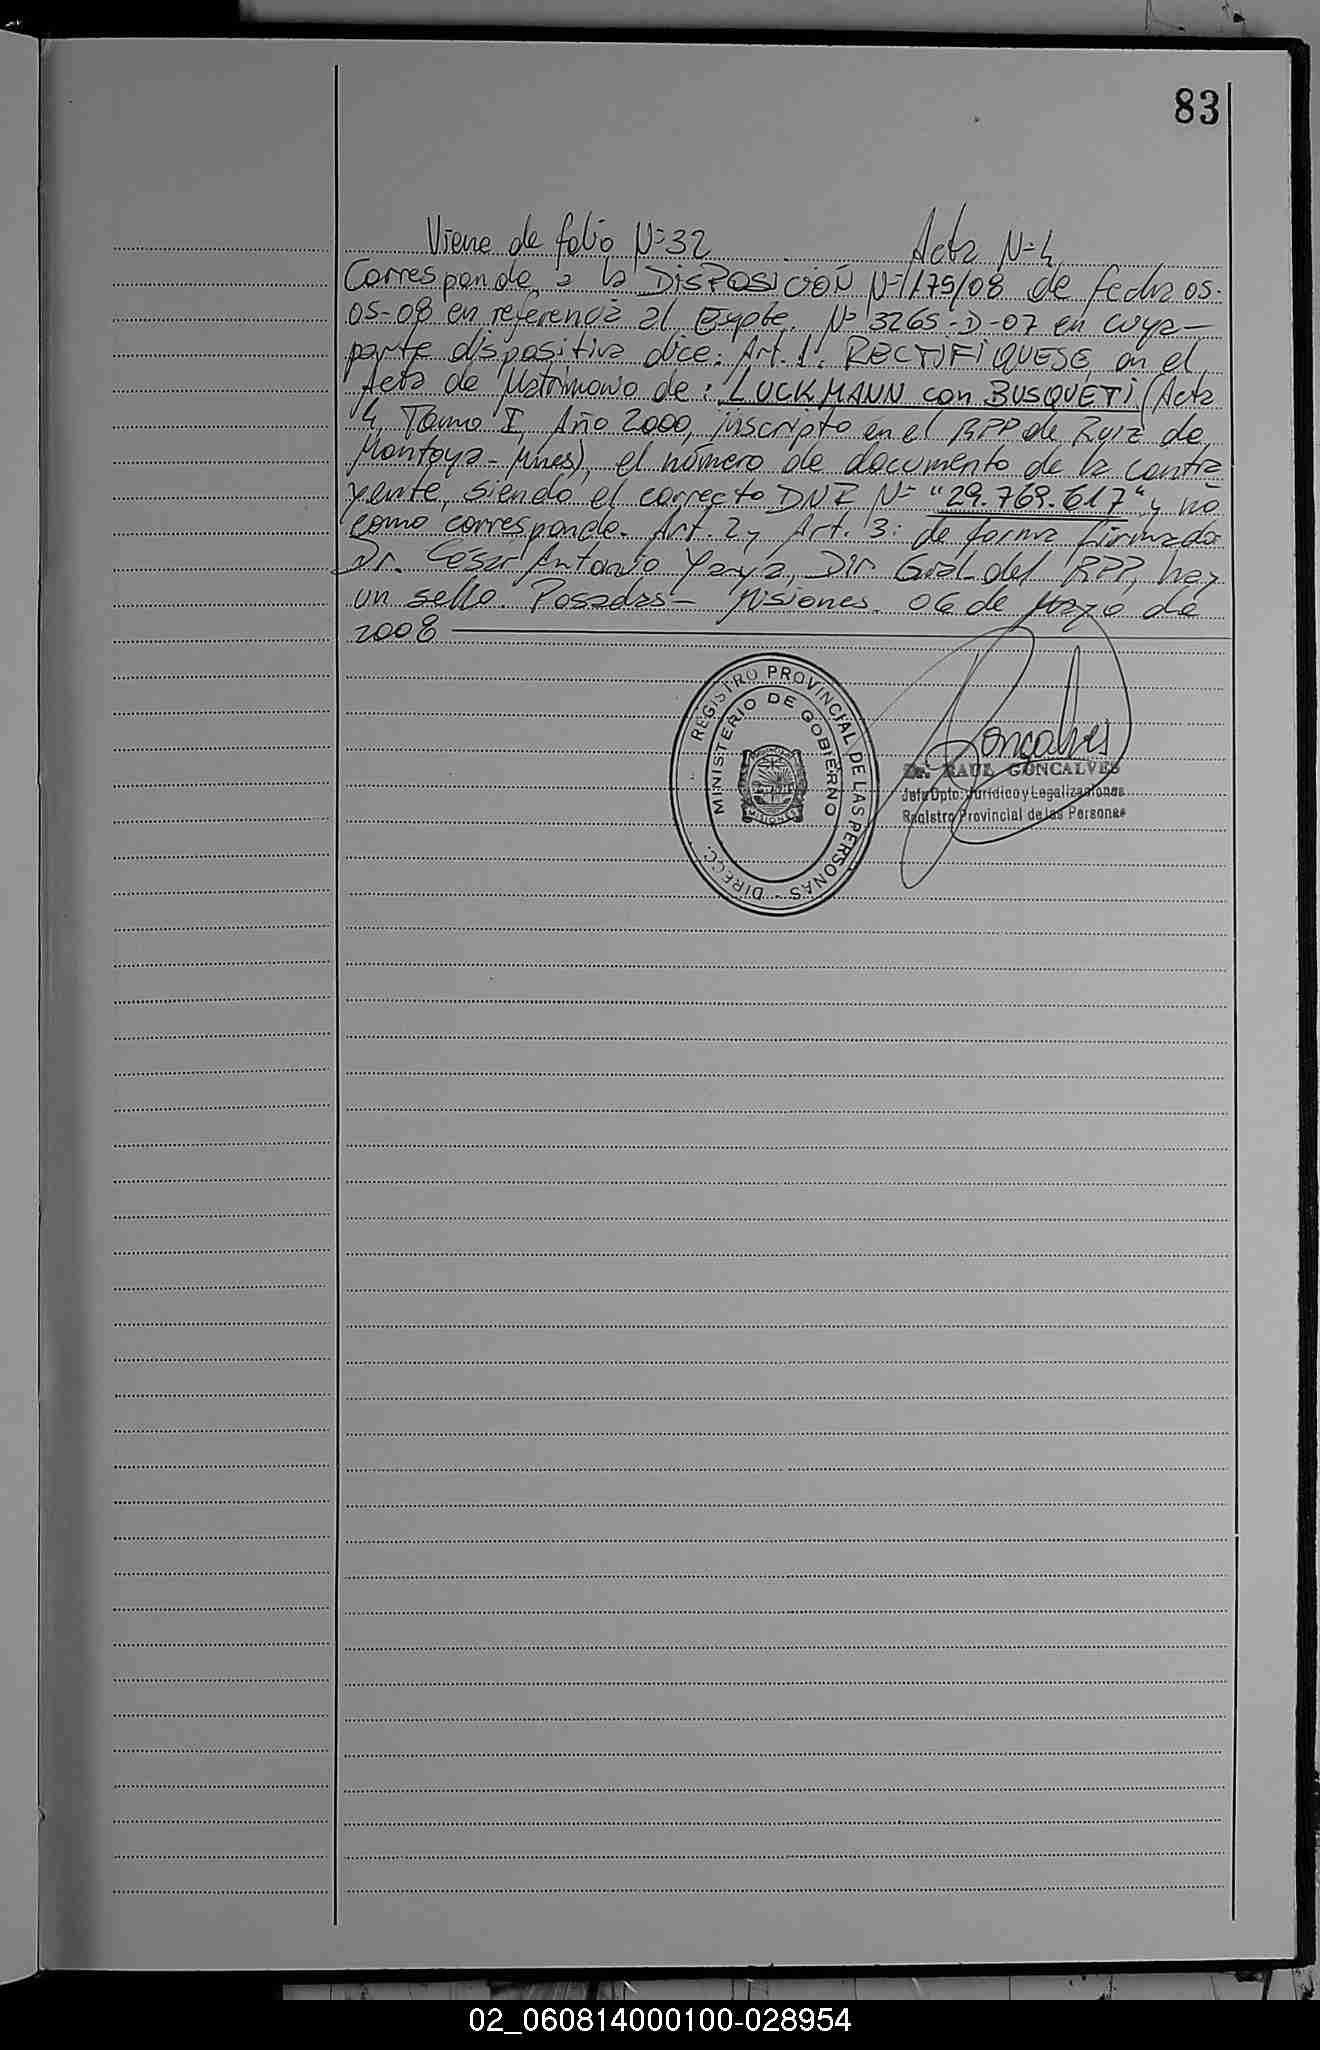 83
Viene de folio Nº 32 Acta Nº 4
Corresponde a la DISPOSICIÓN Nº 1179/08 de fecha 05-
05-08 en referencia al Expte. Nº 3265-D-07 en cuya-
parte dispositiva dice: Art. 1: RECTIFIQUESE en el
Acta de Matrimonio de: LUCKMANN con BUSQUETI (Acta
4, Tomo I, Año 2000, inscripto en el RPP de Ruiz de
Montoya - Mnes), el número de documento de la contra
yente, siendo el correcto DNI Nº "29.769.617" y no
como corresponde. Art. 2 y Art. 3: de forma firmado
Dr. César Antonio Yaya, Dir Gral del RPP, hay
un sello. Posadas - Misiones. 06 de Mayo de
2008
REGISTRO PROVINCIAL DE LAS PERSONAS - DIRECC.
MINISTERIO DE GOBIERNO
MISIONES
Goncalves
Dr. RAUL GONCALVES
Jefe Dpto: Jurídico y Legalizaciones
Registro Provincial de las Personas
02_060814000100-028954